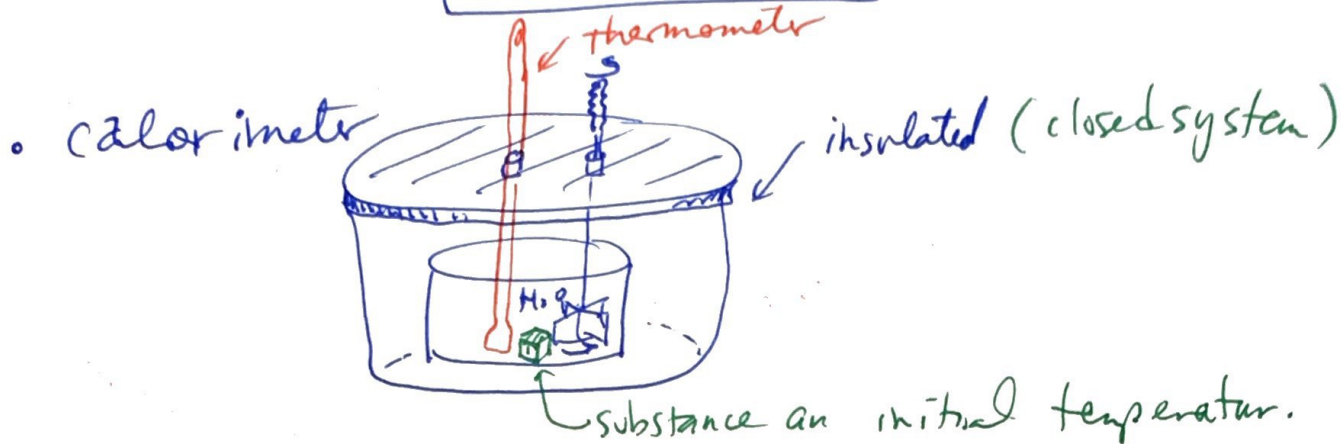 thermometer
• calorimeter
insulated (closed system)
H₂O
substance an initial temperatur.